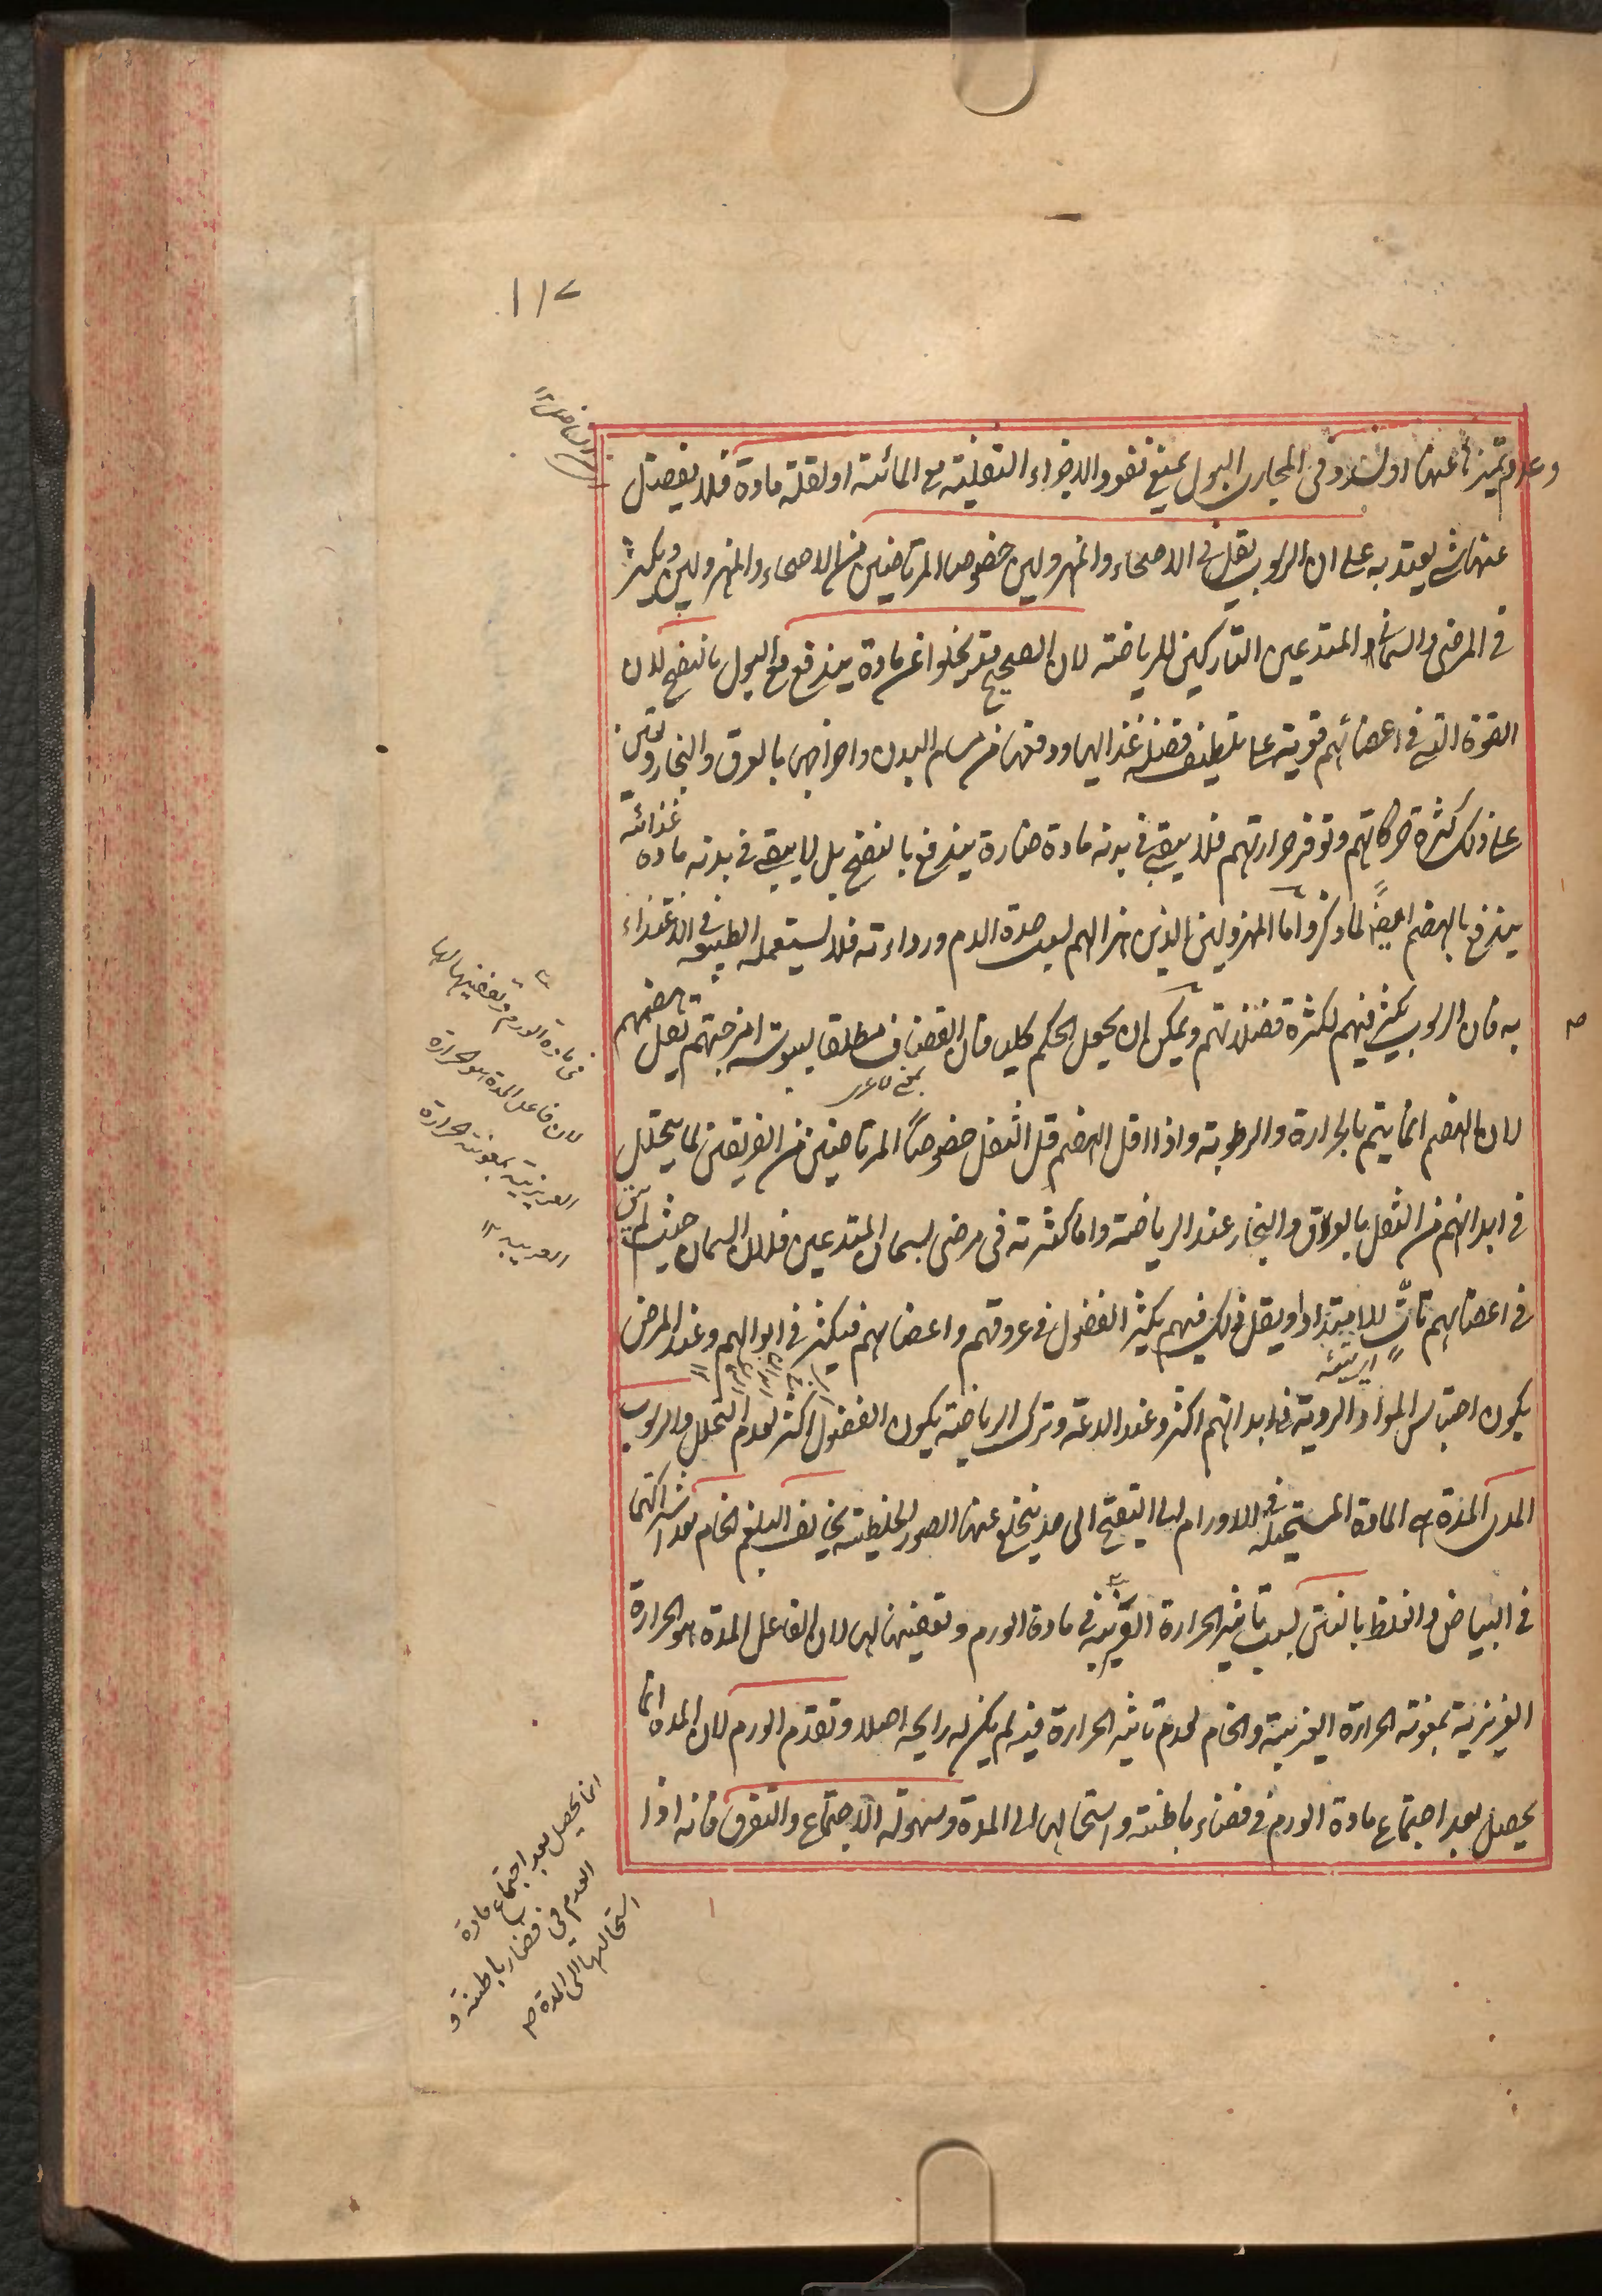 ١١٧
وعدم تميزها عنها او لسدد فى المجارى البول يمنع نفوذ الاجزاء الثفلية مع المائية او لقلة مادة فلا يفصل
عنها شئ يعتد به على ان الرسوب يقل فى الاصحاء والمهزولين خصوصا المرتاضين من الاصحاء والمهزولين ويكثر
فى المرضى والسمان والمتدعين التاركين للرياضة لان الصحيح قد يخلوا عن مادة يندفع مع البول بالنضج لان
القوة التى فى اعضائهم قوية على تلطيف فضلة غذائها ودفعها من مسام البدن واخراجها بالعرق والبخار ويعين
على ذلك كثرة حركاتهم وتوفر حرارتهم فلا يبقى فى بدنه مادة ضارة يندفع بالنضج بل لا يبقى فى بدنه مادة غذائية
يندفع بالهضم ايضا لما ذكر واما المهزولين الذين هزالهم بسبب حدة الدم ورداءته فلا يستعمله الطبيعة فى الاغتذاء
به فان الرسوب يكثر فيهم لكثرة فضلاتهم ويمكن ان يجعل الحكم كليا فان القضاف مطلقا ليبوسة امزجتهم يقل هضمهم
لان الهضم انما يتم بالحرارة والرطوبة واذا اقل الهضم قل الثفل خصوصا المرتاضين من الفريقين لما يتحلل
فى ابدانهم من الثفل بالعرق والبخار عند الرياضة واما كثرته فى مرضى لسمان المتدعين فلان السمان حيث لم يبق
فى اعضائهم تأت للامتداد او يقل ذلك فيهم يكثر الفضول فى عروقهم واعضائهم فيكثر فى ابوالهم وعند المرض
يكون احتباس المواد الردية فى ابدانهم اكثر وعند الدعة وترك الرياضة يكون الفضول اكثر لعدم التحلل والرسوب
المدى المدة هى المادة المستحيلة فى الاورام الى التقيح الى حد ينخلع عنها الصور الخلطية يخالف البلغم الخام بعد اشتراكهما
فى البياض والغلظ بالنتن بسبب تاثير الحرارة الغريبة فى مادة الورم وتعفينها لها لان الفاعل المدة هو الحرارة
الغريزية بمعونة الحرارة الغريبة والخام لعدم تاثير الحرارة فيه لم يكن له رايحة اصلا وتقدم الورم لان المدة انما
يحصل بعد اجتماع مادة الورم فى فضاء باطنة واستحالتها الى المدة وسهولة الاجتماع والتفرق فانه اذا
فى مادة الورم وتعفينها لها
لان فاعل المدة هو الحرارة
الغريزية بمعونة الحرارة
الغريبة ١٢
انما يحصل بعد اجتماع مادة
الورم فى فضاء باطنة و
استحالتها الى المدة